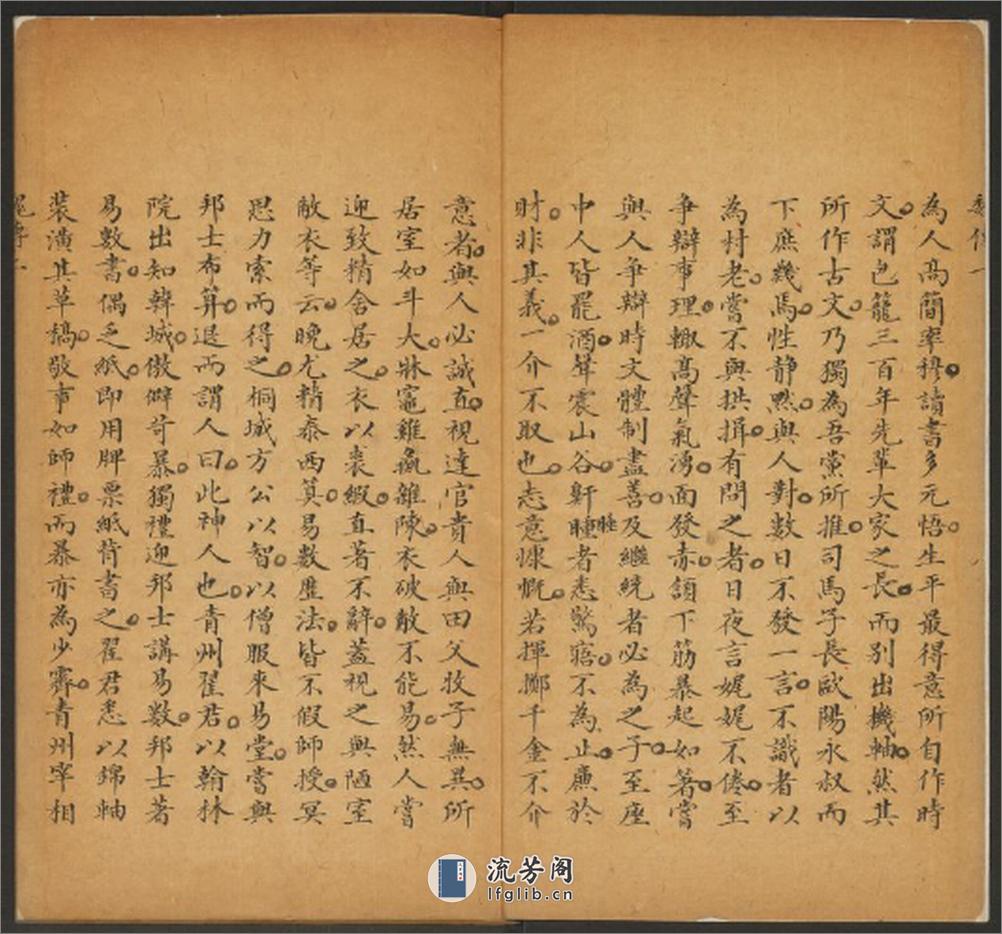 為人髙簡率穆。讀書多元悟。生平最得意所自作時
文。謂包籠三百年先輩大家之長。而別出機軸。然其
所作古文。乃獨為吾黨所推。司馬子長歐陽永叔而
下庶幾焉。性静黙。與人對數日不發一言。不識者以
為村老。嘗不與拱揖。有問之者。日夜言娓娓不倦。至
争辯事理。輙髙聲氣湧。面發赤。頷下筋暴起如著。嘗
與人争辯時文體制盡善。及繼統者必為之子。至座
中人皆罷酒。聲震山谷。鼾睡者悉驚寤。不為止。廉於
睡
財。非其義。一介不取也。志意慷慨。若揮擲千金不介
意者。與人必誠直。視達官貴人與田父牧子無異。所
居室如斗大。牀竈雞彘雜陳。衣破敝不能易。然人嘗
迎致精舍居之。衣以裘緞。直著不辭。蓋視之與陋室
敝衣等云。晚尤精泰西筭。易數厯法。皆不假師授。冥
思力索而得之。桐城方公以智。以僧服來易堂。嘗與
邦士布筭。退而謂人曰。此神人也。青州翟君。以翰林
院出知韓城。傲僻苛暴。獨禮迎邦士講易數。邦士著
易數書。偶乏紙。即用牌票紙背書之。翟君悉以錦軸
裝潢其草稿。敬事如師禮。而暴亦為少霽。青州宰相